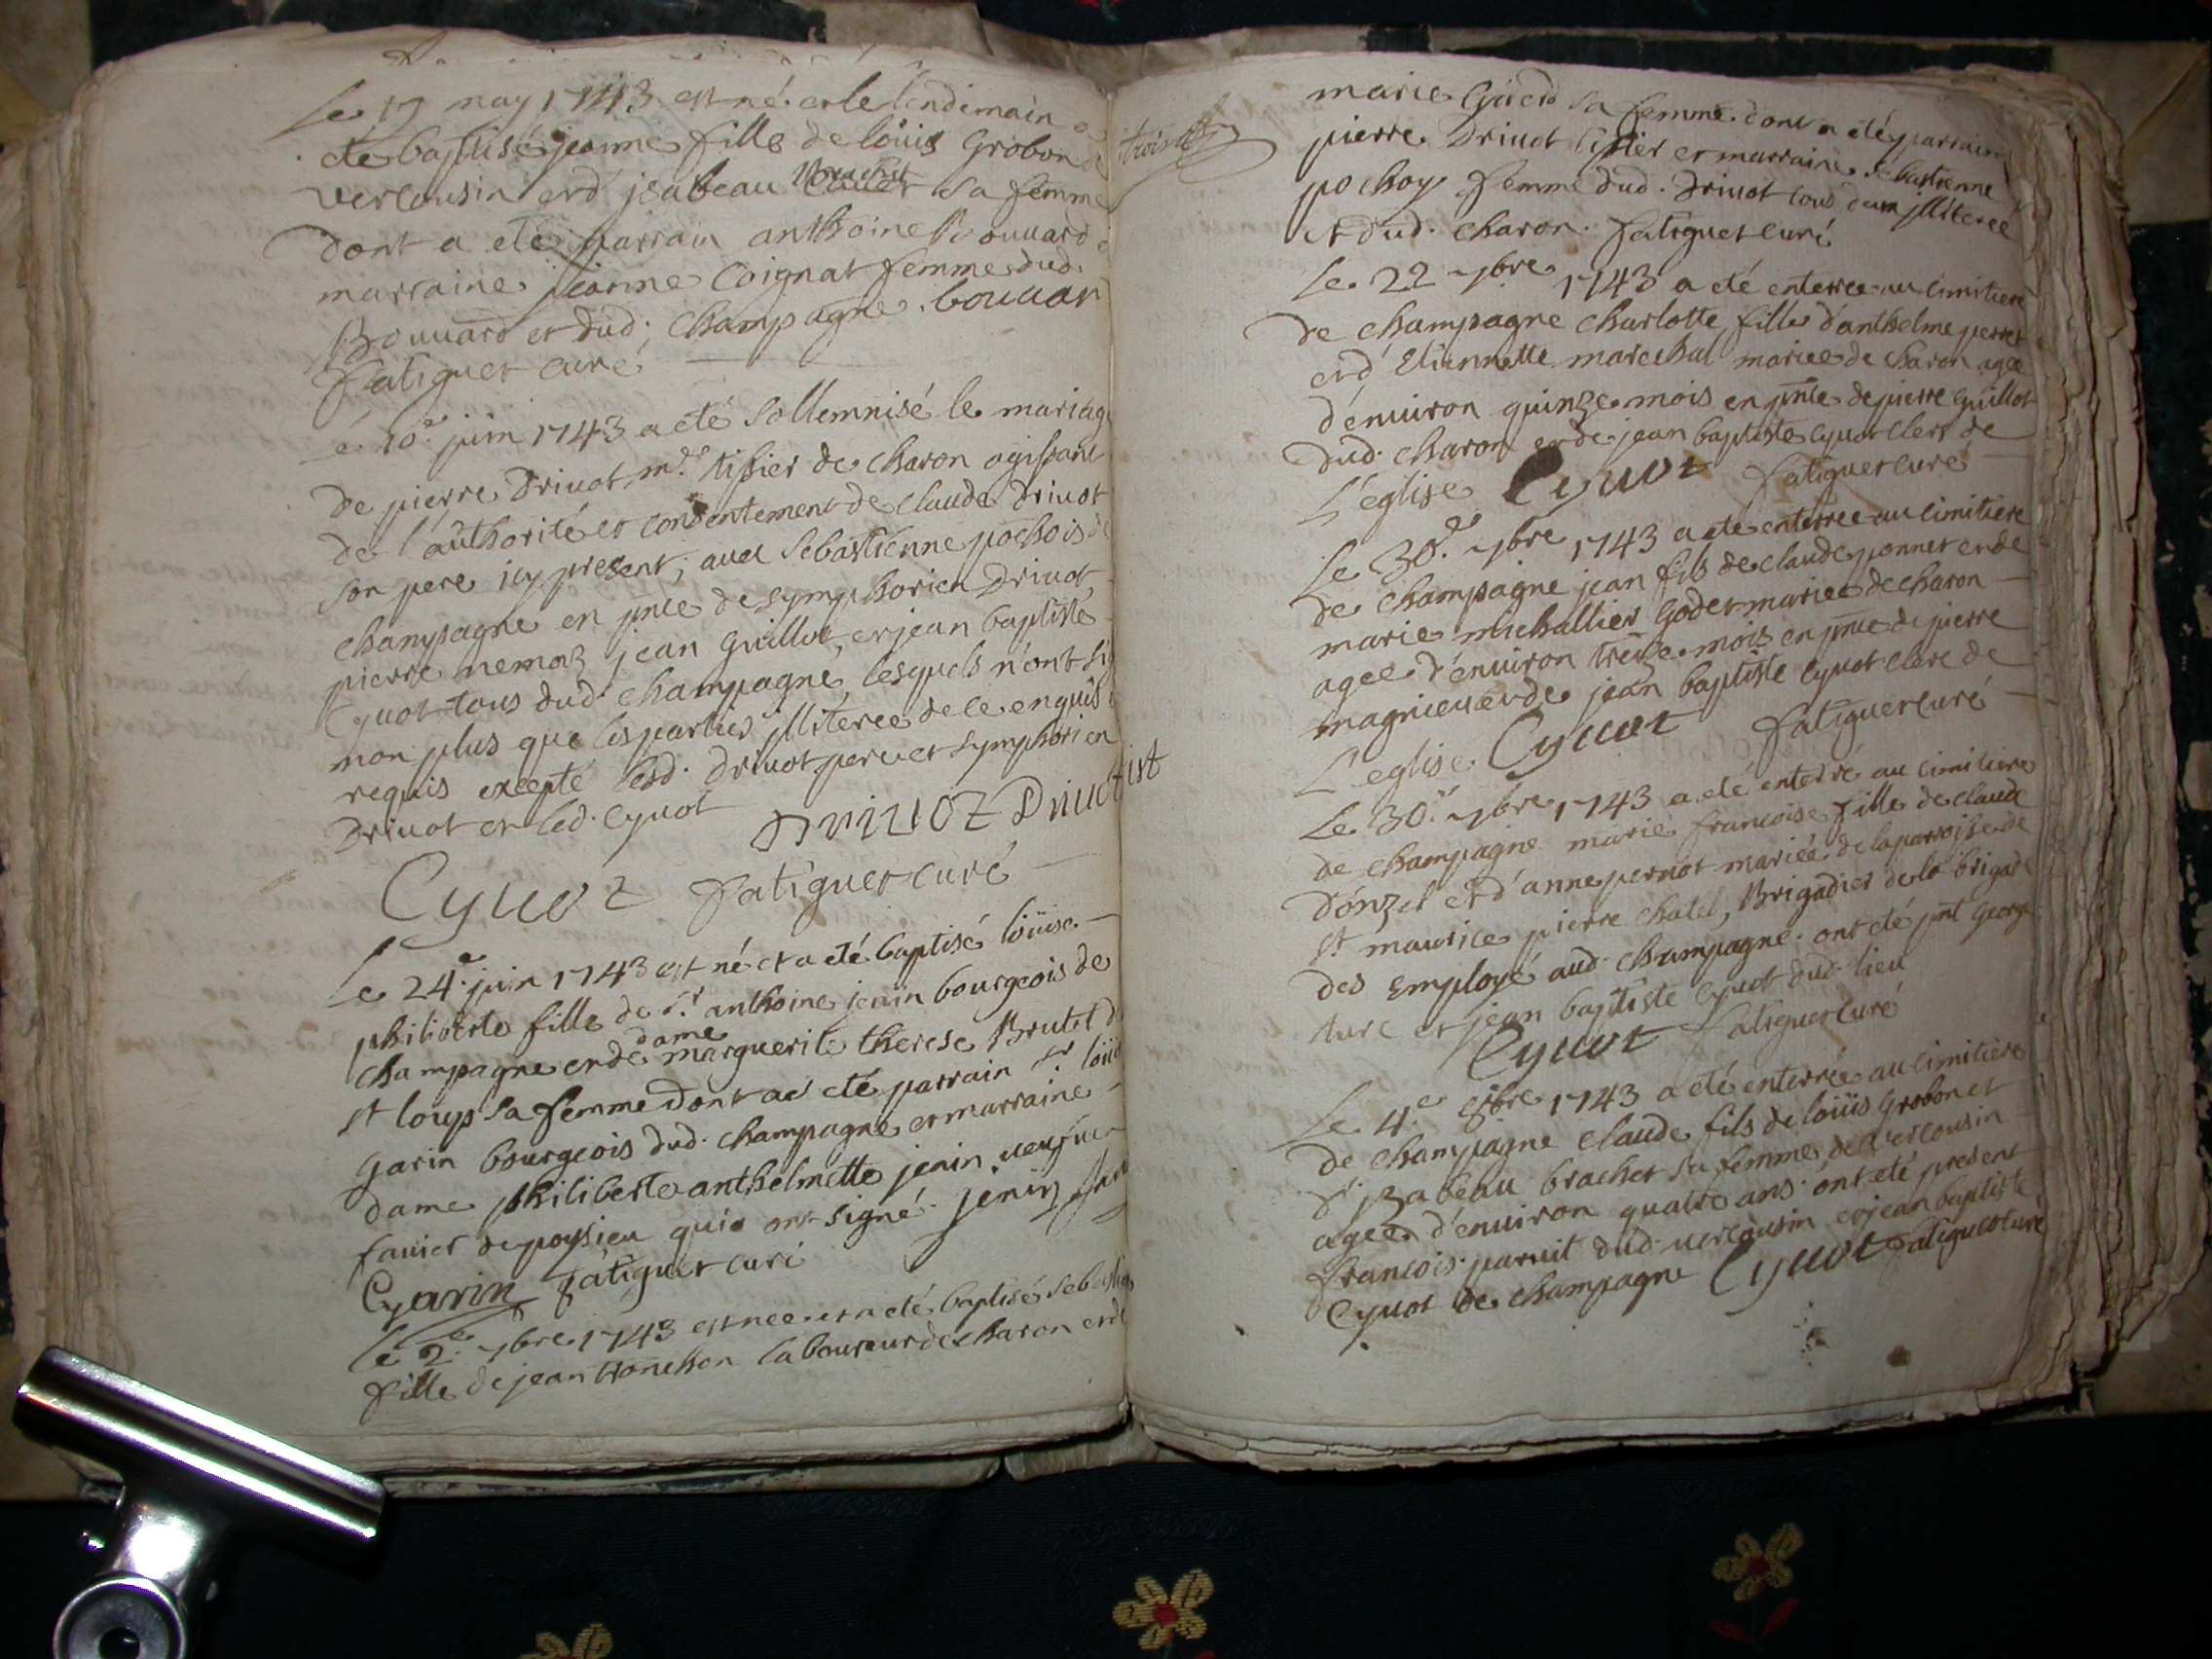 Le 17 may 1743 est né. et le lendemain a
eté baptisé jeanne fille de loüis Grobon de
Vercousin et d'jsabeau brachet sa femme
dont a eté parrain anthoine Bouuard et
marraine jeanne Coignat femme dud.
Bouuard et dud; Champagne. bouuar
fatiguet curé
Le 10e. juin 1743 a eté sollemnisé le mariage
de pierre Driuot, md. tissier de charon agissant
de l'authorité et consentement de claude driuot
son pere icy present, auec sebastienne pochois de
champagne en pnce de symphorien Driuot
pierre nemoz jean Guillot, et jean baptiste
Cyuot tous dud. champagne, lesquels n'ont si
non plus que les parties jlliteree de ce enquis
requis excepté lesd. driuot pere et symphorien
Driuot et led. Cyuot DRIVOZ Driuot
Cyuot fatiguet curé
Le 24e. juin 1743 est né et a eté baptisé loüise
philiberte fille de sr. anthoine jenin bourgeois de
champagne et de dame marguerite therese Brutel d
st loup sa femme dont ac eté parrain sr. loüis
garin bourgeois dud. champagne et marraine
dame philiberte anthelmette jenin veufue
fauier de poysieu qui ont signé. jenin
Gyarin fatiguet curé
Le 2e. 7bre. 1743 est nee et a eté baptisé sebastien
fille de jean Honchon laboureur de charon et de
marie sa femme. dont a eté parrain
pierre Driuot tissier et marraine sebastienne
pochoy femme dud. Driuot tous deux jlliteree
et dud. charon. fatiguet curé
Le 22 7bre. 1743 a eté enterree au cimitiere
de champagne charlotte fille d'anthelme perret
et d'Etiennette marechal mariee de charon agee
d'enuiron quinze mois en pnce de pierre Guillot
dud. charon et de jean baptiste Cyuot clerc de
L'eglise Cyuot fatiguet curé
Le 30e. 7bre 1743 a eté enterree au cimitiere
de champagne jean fils de claude ponnet et de
marie michallier Godet mariee de charon
agee d'enuiron treize mois en pnce de pierre
magnieu et de jean baptiste Cyuot clerc de
L'eglise Cyuot fatiguet curé
Le 30e. 7bre. 1743 a eté enterré au cimitiere
de champagne marie francoise fille de claude
D'onzel et d'anne pernot mariée de la paroisse de
st. maurice pierre chatel, Brigadier de la brigade
des Employé aud. champagne. ont eté pnt George
ture et jean baptiste Cyuot dud. lieu
Cyuot fatiguet curé
Le 4e. 8bre. 1743 a eté enterrée au cimitiere
de champagne claude fils de loüis Grobon et
d'jzabeau brachet sa femme de Vercousin
agee d'enuiron quatre ans. ont eté present
francois paruit dud. uercousin et jean baptiste
Cyuot de champagne Cyuot fatiguet curé